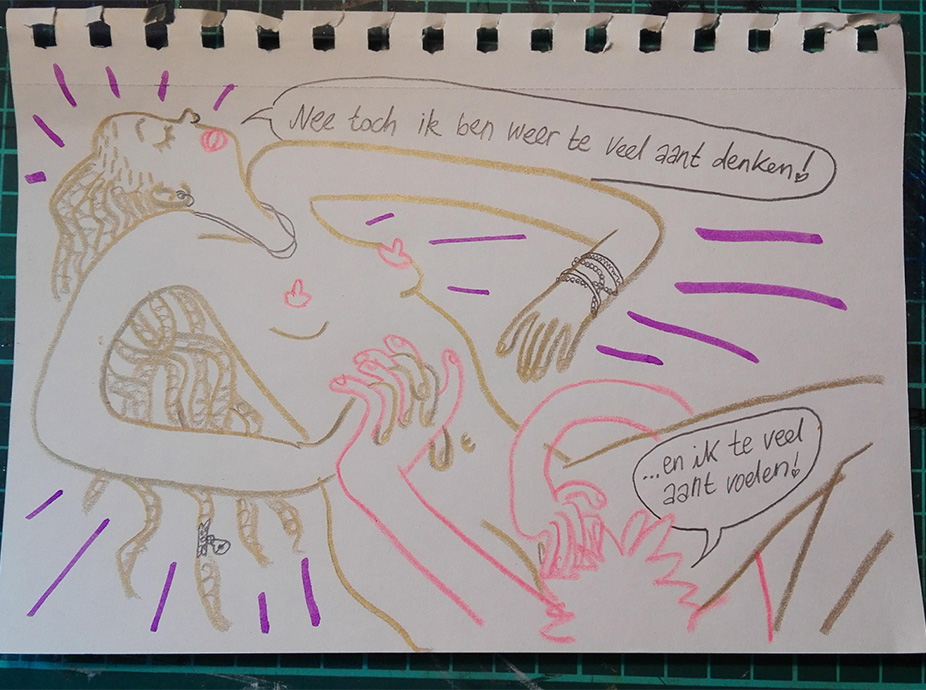 Nee toch ik ben weer te veel aant denken!
...en ik te veel
aant voelen!